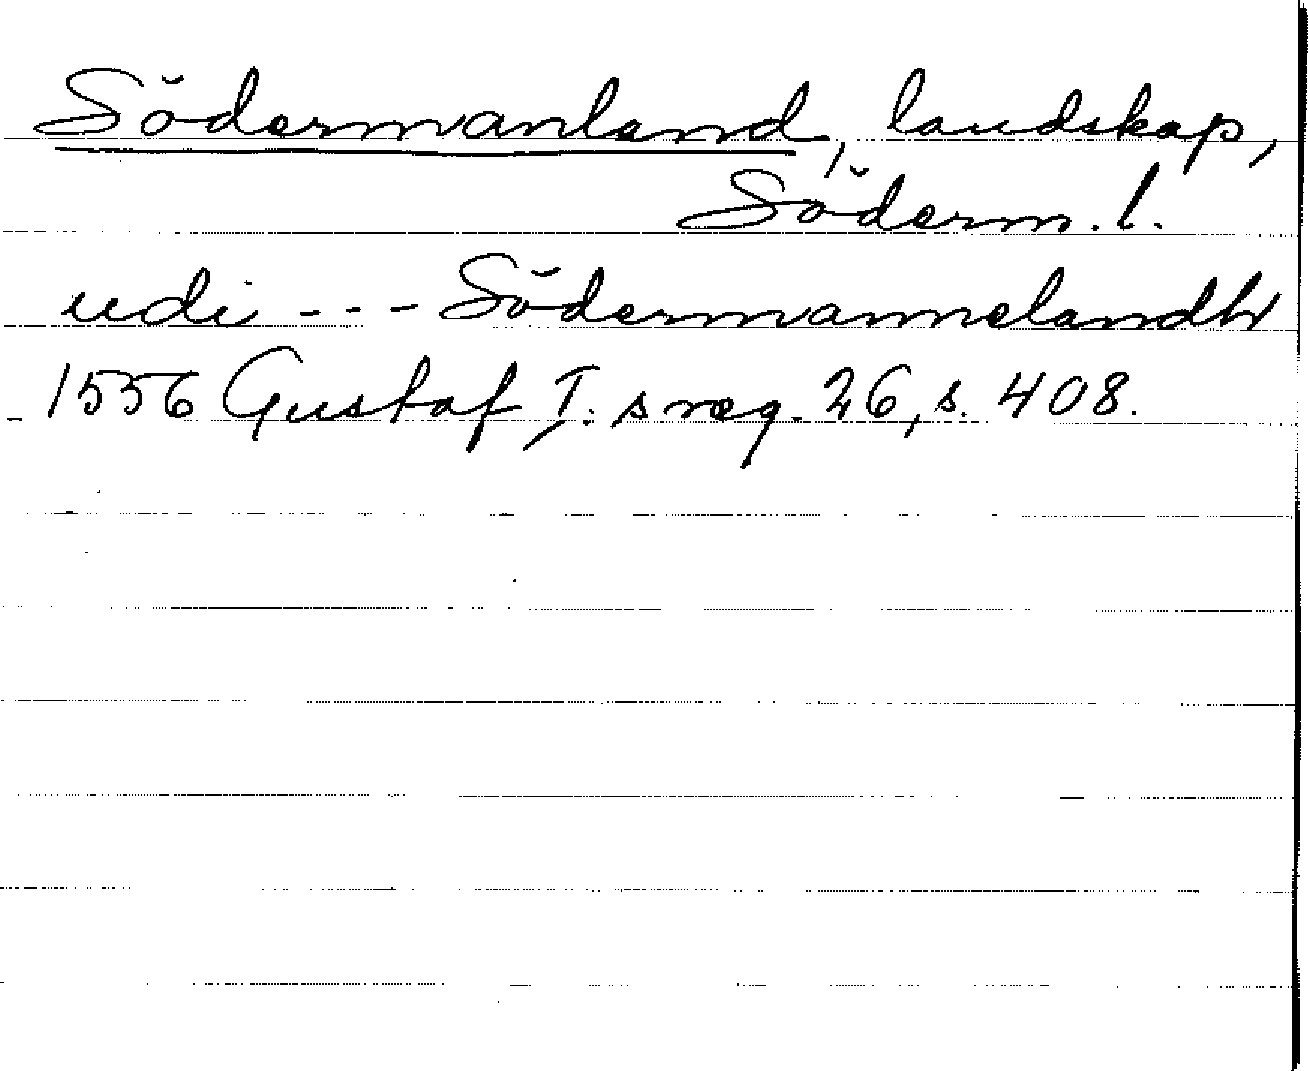 Södermanland, landskap,
Söderm.l.
udi --- Södermannelandh
1556 Gustaf I:s reg. 26, s. 408.